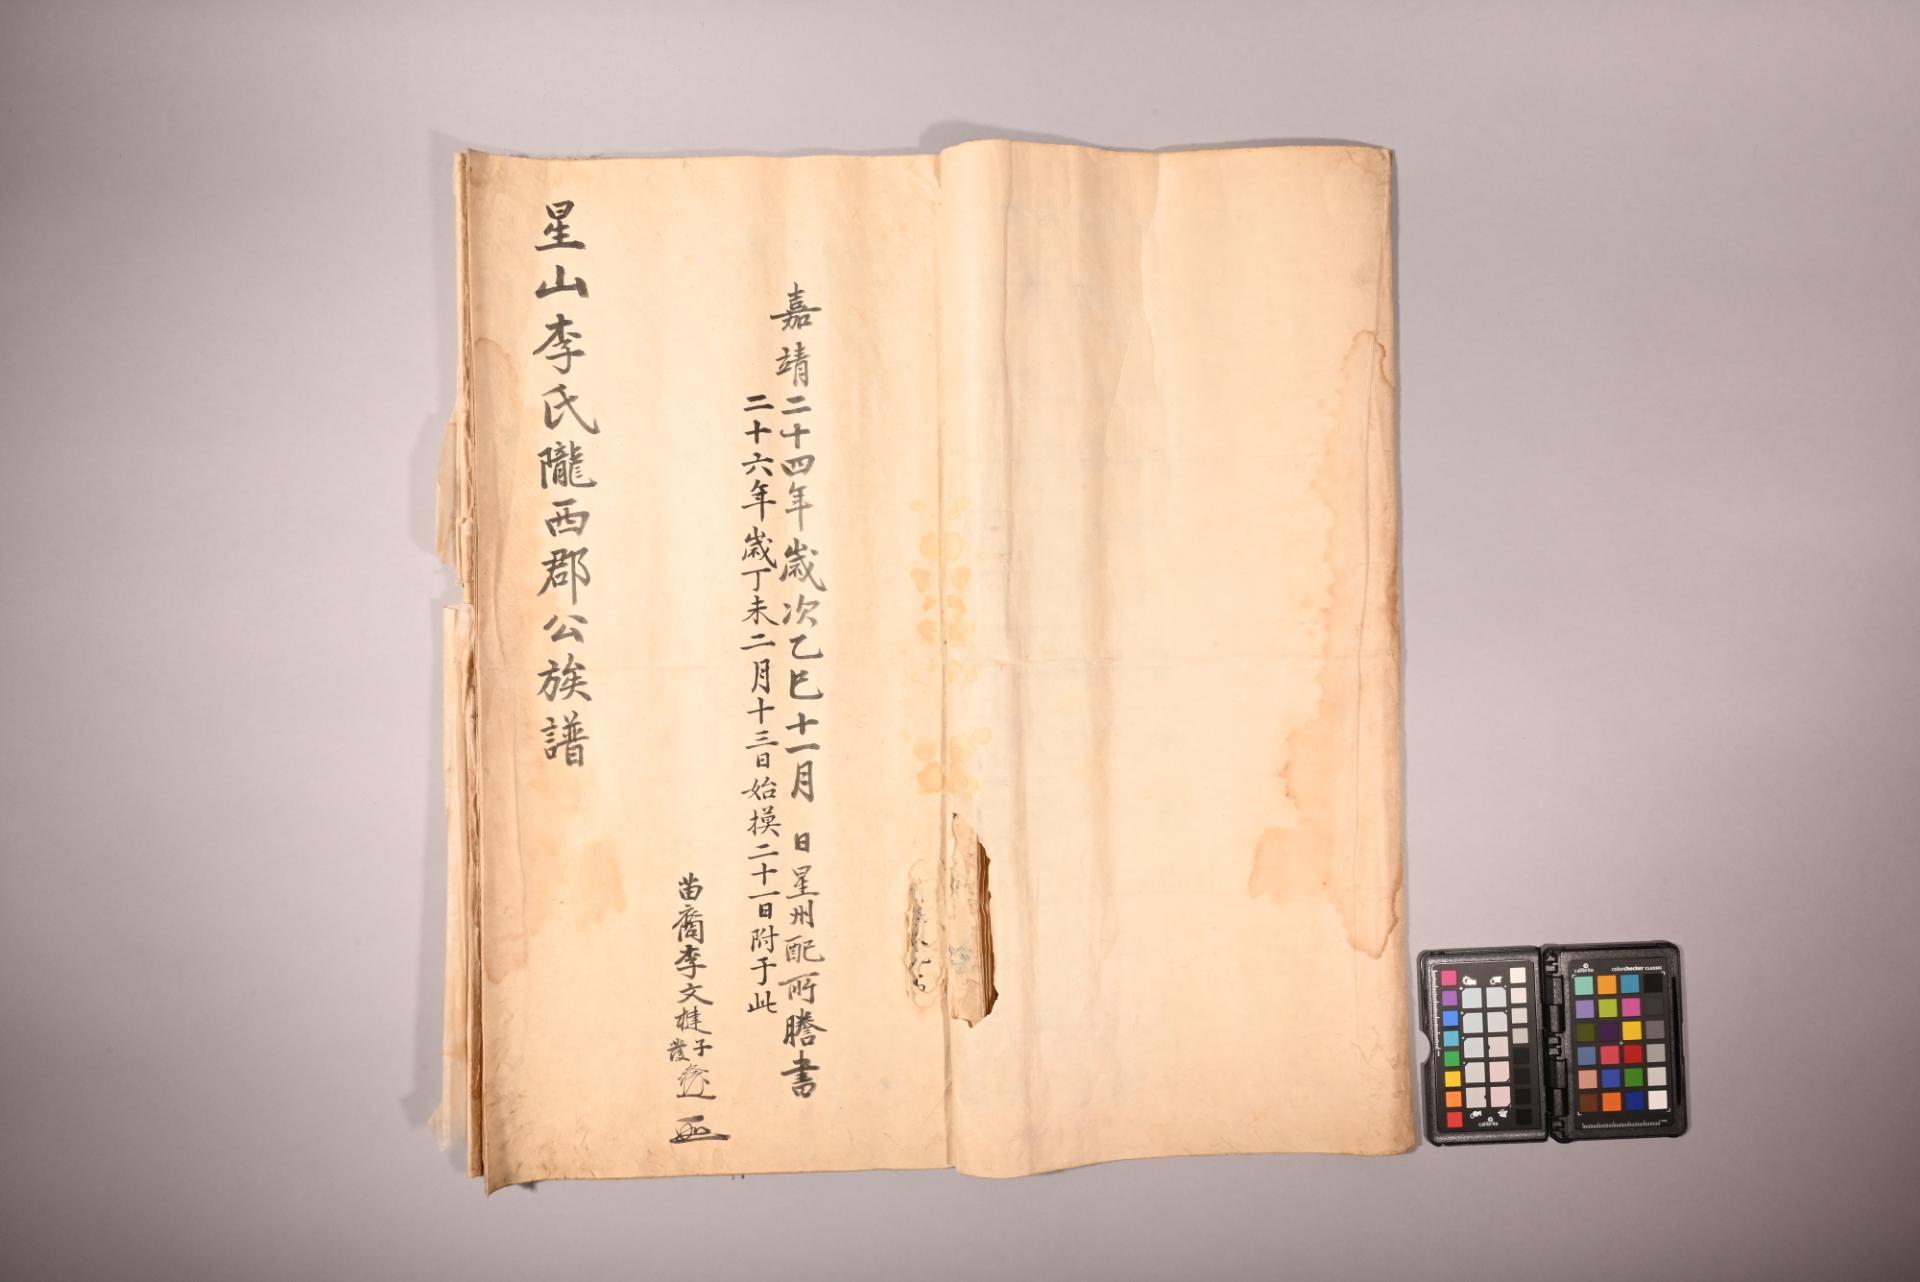 嘉靖二十四年歲次乙巳十一月 日星州配所謄書
二十六年歲丁未二月十三日始摸二十一日附于此
苗裔李文楗
子
發
星山李氏隴西郡公族譜
calibrite
colorchecker CLASSIC
calibrite